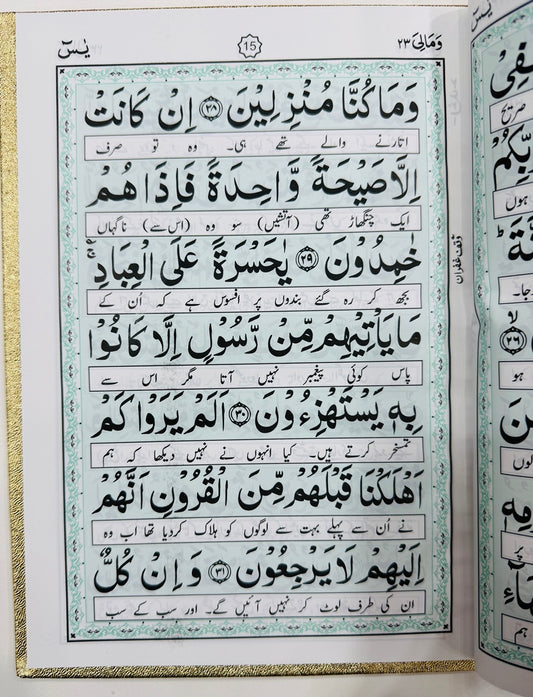 وَمَالِیَ ٢٣
15
يٰسٓ
وَمَا كُنَّا مُنْزِلِيْنَ ﴿٢٨﴾ اِنْ كَانَتْ
اتارنے والے تھے ہی۔ وہ تو صرف
اِلَّا صَيْحَةً وَّاحِدَةً فَاِذَا هُمْ
ایک چنگھاڑ تھی (آتشیں) سو وہ (اس سے) ناگہاں
خٰمِدُوْنَ ﴿٢٩﴾ يٰحَسْرَةً عَلَى الْعِبَادِ
بجھ کر رہ گئے بندوں پر افسوس ہے کہ اُن کے
مَا يَاْتِيْهِمْ مِّنْ رَّسُوْلٍ اِلَّا كَانُوْا
پاس کوئی پیغمبر نہیں آتا مگر اس سے
بِهٖ يَسْتَهْزِءُوْنَ ﴿٣٠﴾ اَلَمْ يَرَوْا كَمْ
تمسخر کرتے ہیں۔ کیا انہوں نے نہیں دیکھا کہ ہم
اَهْلَكْنَا قَبْلَهُمْ مِّنَ الْقُرُوْنِ اَنَّهُمْ
نے اُن سے پہلے بہت سے لوگوں کو ہلاک کردیا تھا اب وہ
اِلَيْهِمْ لَا يَرْجِعُوْنَ ﴿٣١﴾ وَ اِنْ كُلٌّ
ان کی طرف لوٹ کر نہیں آئیں گے۔ اور سب کے سب
وقف غفران
يٰسٓ
صریح
ہوں
جا۔
﴿٢٦﴾
ہو
لوں
پر
ہم